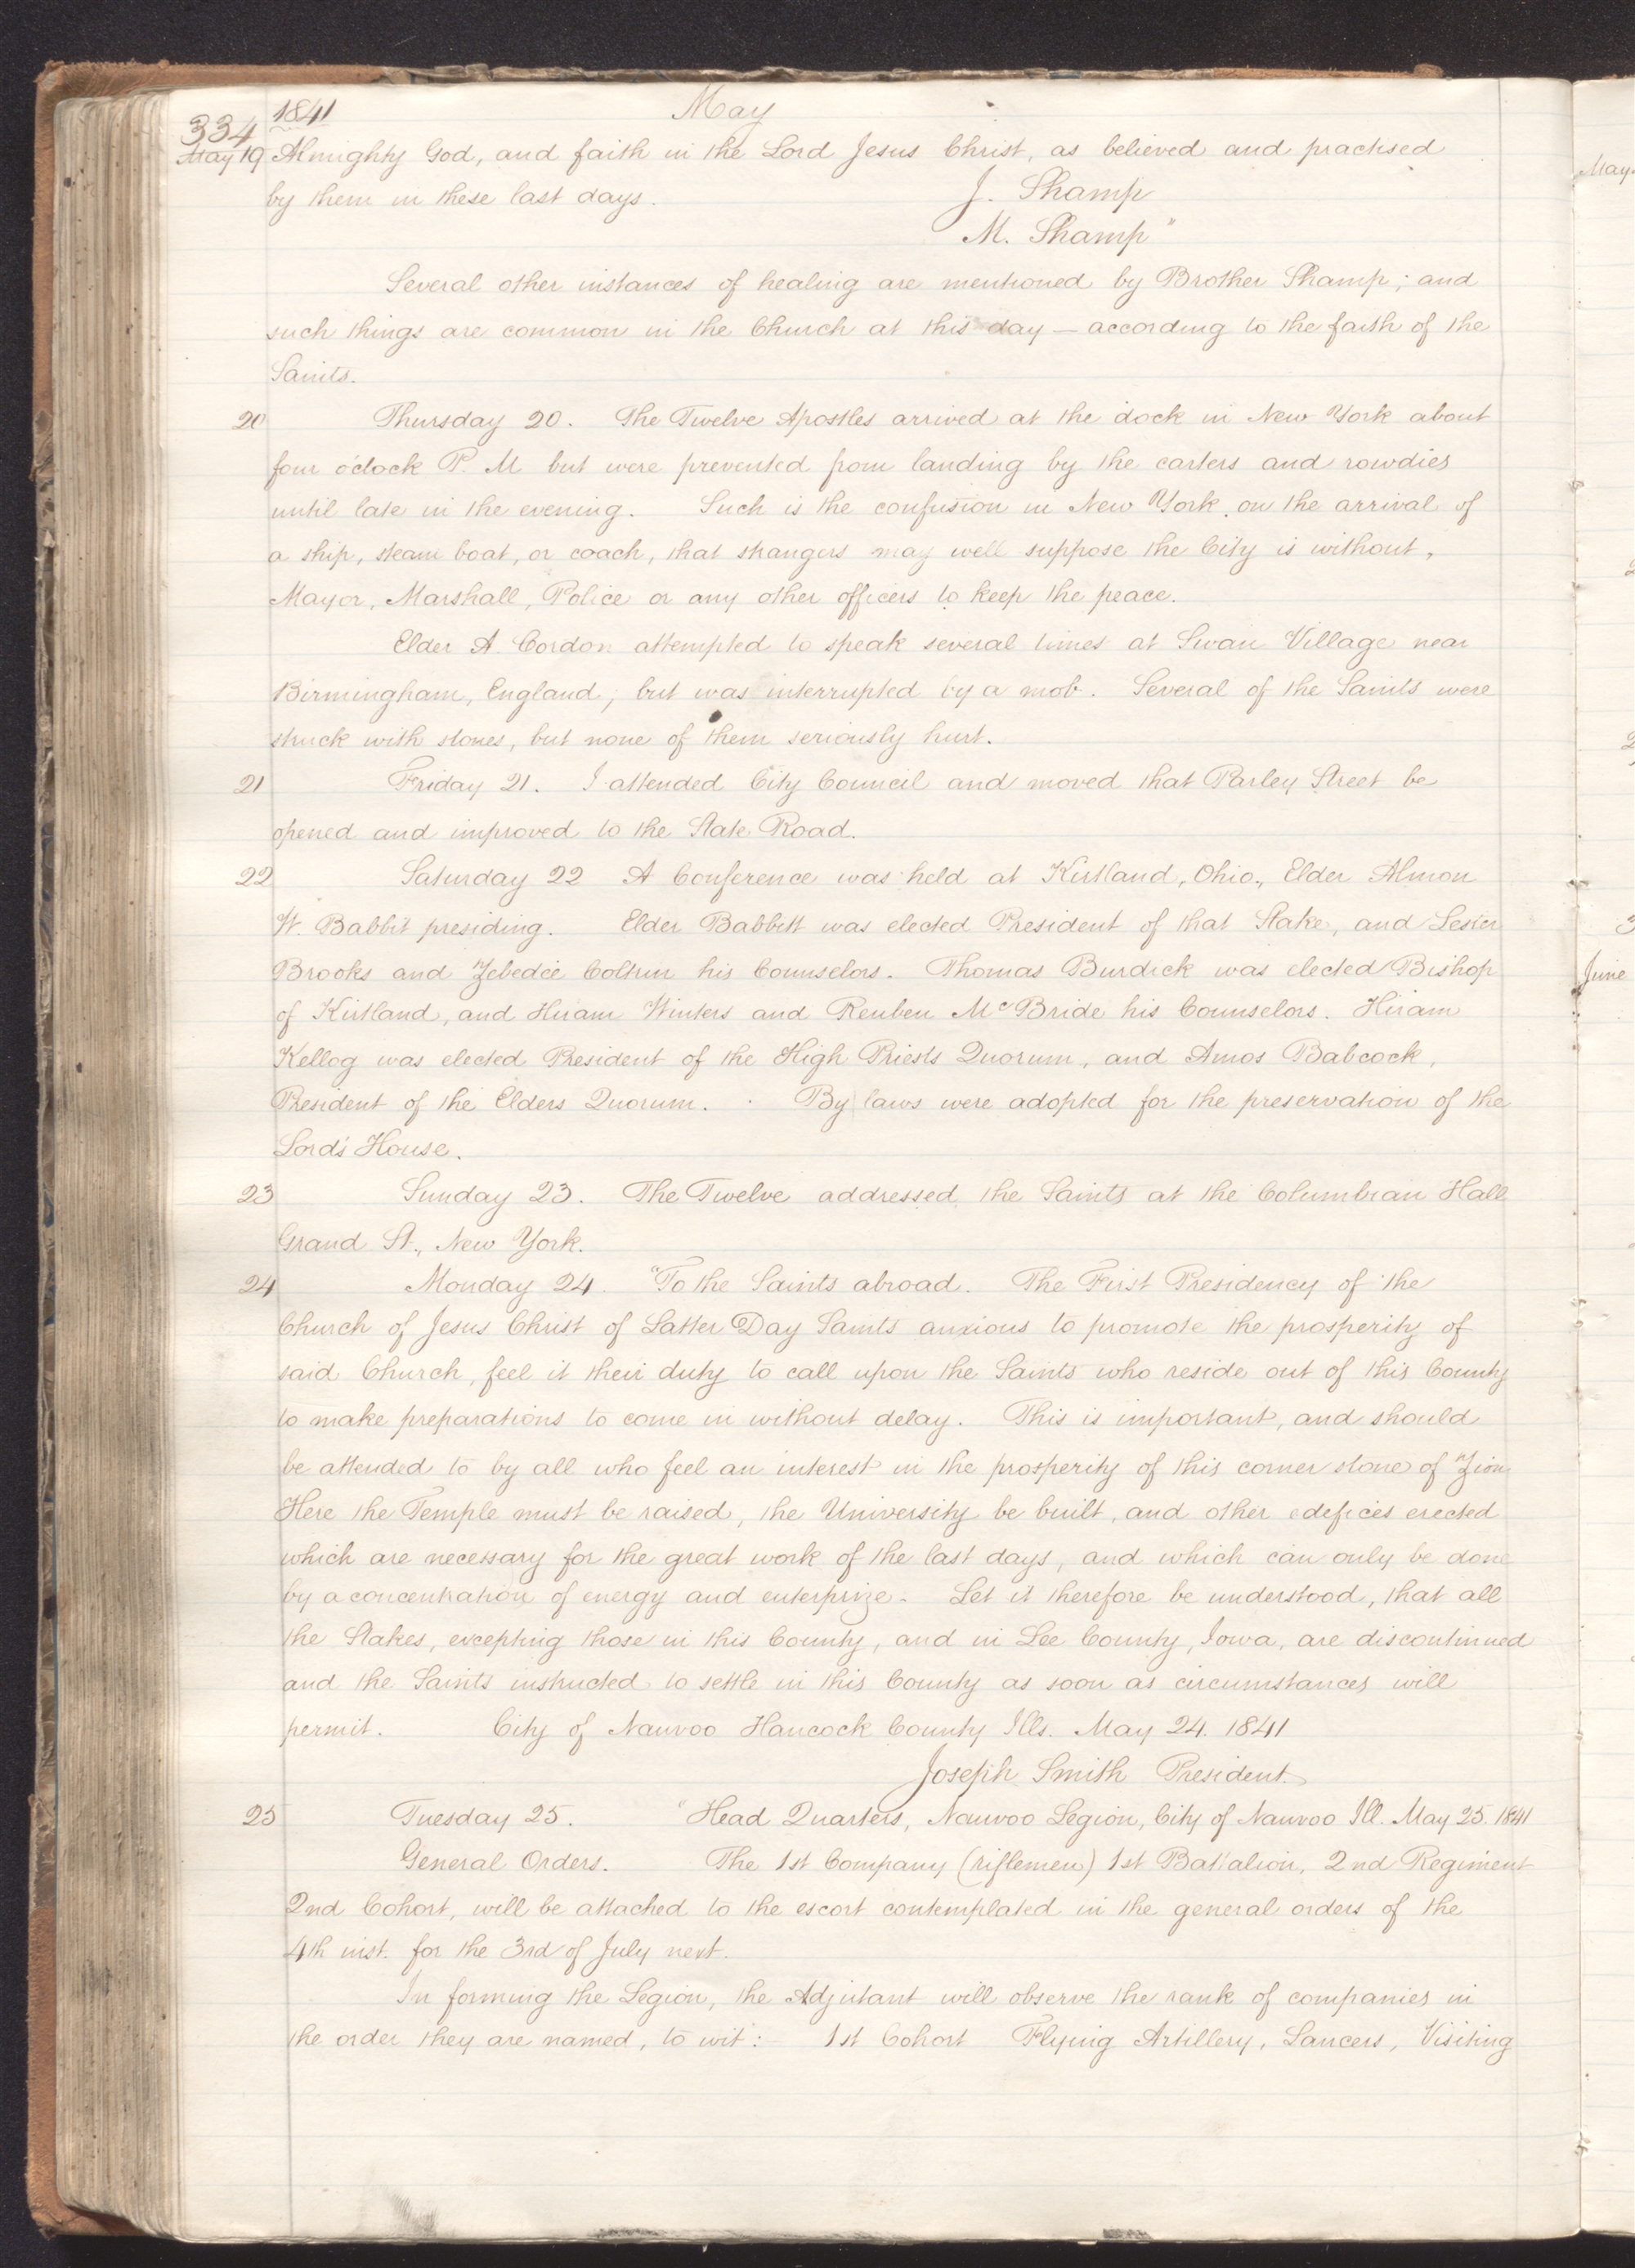 334 1841 May
May 19 Almighty God, and faith in the Lord Jesus Christ, as believed and practised
by them in these last days. J. Shamp
M. Shamp"
Several other instances of healing are mentioned by Brother Shamp; and
such things are common in the Church at this day — according to the faith of the
Saints.
20 Thursday 20. The Twelve Apostles arrived at the dock in New York about
four o'clock P. M but were prevented from landing by the carters and rowdies
until late in the evening. Such is the confusion in New York, on the arrival of
a ship, steam boat, or coach, that strangers may well suppose the City is without,
Mayor, Marshall, Police or any other officers to keep the peace.
Elder A. Cordon attempted to speak several times at Swan Village near
Birmingham, England; but was interrupted by a mob. Several of the Saints were
struck with stones, but none of them seriously hurt.
21 Friday 21. I attended City Council and moved that Parley Street be
opened and improved to the State Road.
22 Saturday 22 A Conference was held at Kirtland, Ohio., Elder Almon
W. Babbit presiding. Elder Babbitt was elected President of that Stake, and Lester
Brooks and Zebedee Coltrin his Counselors. Thomas Burdick was elected Bishop
of Kirtland, and Hiram Winters and Reuben McBride his Counselors. Hiram
Kellog was elected President of the High Priests Quorum, and Amos Babcock,
President of the Elders Quorum. By laws were adopted for the preservation of the
Lord's House.
23 Sunday 23. The Twelve addressed the Saints at the Columbian Hall
Grand St., New York.
24 Monday 24. "To the Saints abroad. The First Presidency of the
Church of Jesus Christ of Latter Day Saints anxious to promote the prosperity of
said Church, feel it their duty to call upon the Saints who reside out of this County
to make preparations to come in without delay. This is important, and should
be attended to by all who feel an interest in the prosperity of this corner stone of Zion
Here the Temple must be raised, the University be built, and other edefices erected
which are necessary for the great work of the last days, and which can only be done
by a concentration of energy and enterprize. Let it therefore be understood, that all
the Stakes, excepting those in this County, and in Lee County, Iowa, are discontinued
and the Saints instructed to settle in this County as soon as circumstances will
permit. City of Nauvoo Hancock County Ills. May 24. 1841
Joseph Smith President.
25 Tuesday 25. "Head Quarters, Nauvoo Legion, City of Nauvoo Ill. May 25. 1841
General Orders. The 1st Company (riflemen) 1st Battalion, 2nd Regiment
2nd Cohort, will be attached to the escort contemplated in the general orders of the
4th inst. for the 3rd of July next.
In forming the Legion, the Adjutant will observe the rank of companies in
the order they are named, to wit:— 1st Cohort Flying Artillery, Lancers, Visiting
May
June